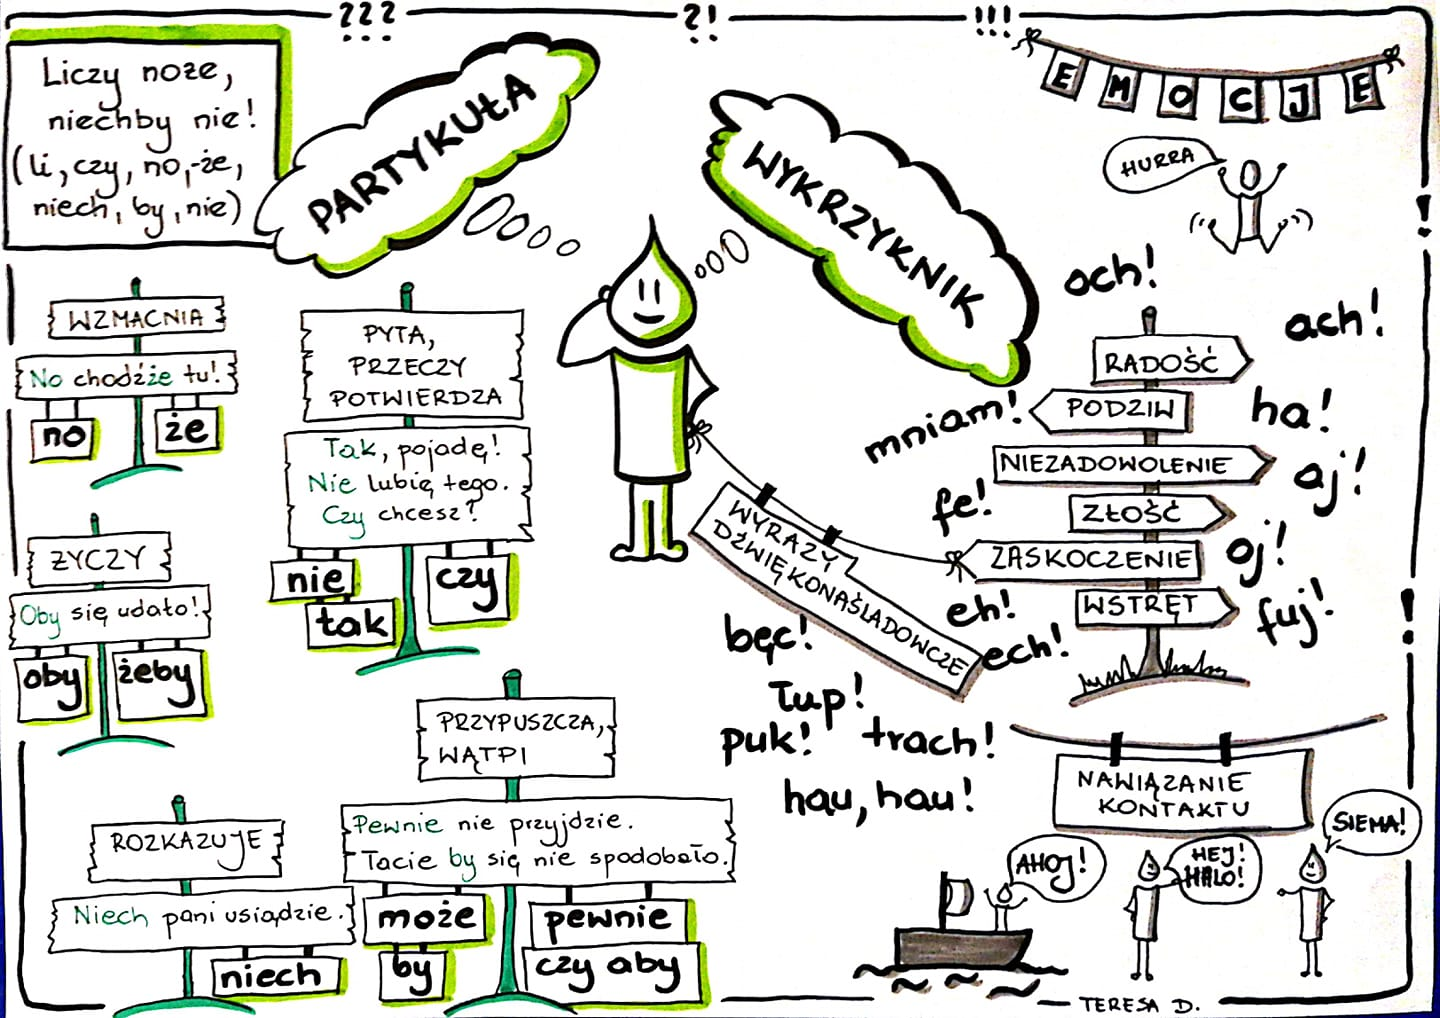 ???
?!
!!!
Liczy noże,
niechby nie!
(li, czy, no,-że,
niech, by, nie)
PARTYKUŁA
WZMACNIA
No chodźże tu!
no
że
PYTA,
PRZECZY
POTWIERDZA
Tak, pojadę!
Nie lubię tego.
Czy chcesz?
nie
tak
czy
ŻYCZY
Oby się udało!
oby
żeby
PRZYPUSZCZA,
WĄTPI
Pewnie nie przyjdzie.
Tacie by się nie spodobało.
może
by
pewnie
czy aby
ROZKAZUJE
Niech pani usiądzie.
niech
WYKRZYKNIK
EMOCJE
HURRA
och!
ach!
RADOŚĆ
PODZIW
NIEZADOWOLENIE
ZŁOŚĆ
ZASKOCZENIE
WSTRĘT
mniam!
ha!
aj!
fe!
oj!
eh!
fuj!
ech!
!
!
WYRAZY
DŹWIĘKONAŚLADOWCZE
bęc!
łup!
puk!
trach!
hau, hau!
NAWIĄZANIE
KONTAKTU
AHOJ!
HEJ!
HALO!
SIEMA!
TERESA D.